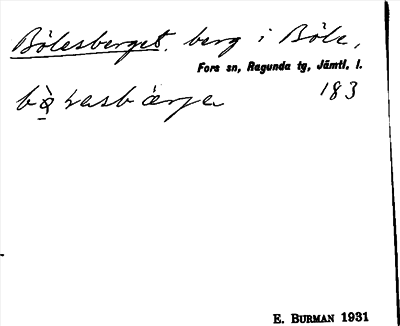 Bölesberget. berg i Böle,
Fors sn, Ragunda tg, Jämtl. l.
183
E. BURMAN 1931